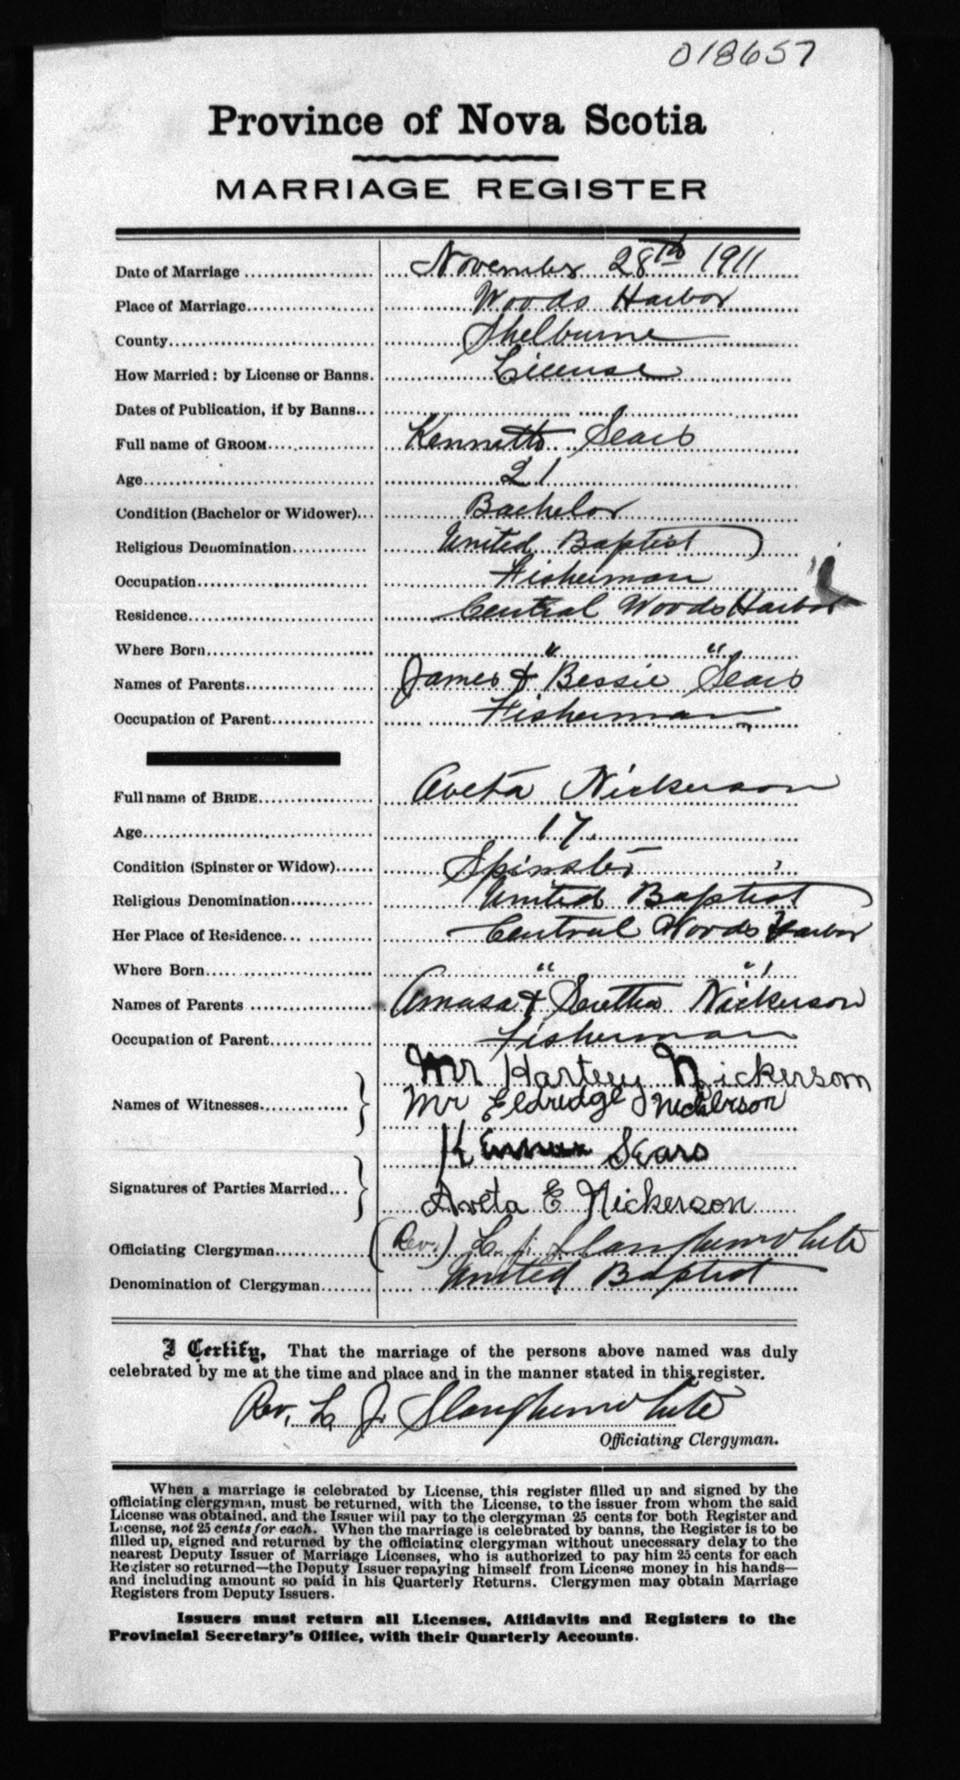 018657
Province of Nova Scotia
MARRIAGE REGISTER
Date of Marriage .................... November 28th 1911
Place of Marriage.................... Woods Harbor
County.................... Shelburne
How Married: by License or Banns. License
Dates of Publication, if by Banns...
Full name of GROOM.................... Kenneth Sears
Age.................... 21
Condition (Bachelor or Widower)... Bachelor
Religious Denomination............ United Baptist
Occupation.................... Fisherman
Residence.................... Central Woods Harbor
Where Born.................... " "
Names of Parents.................... James & Bessie Sears
Occupation of Parent.................... Fisherman
Full name of BRIDE.................... Aveta Nickerson
Age.................... 17
Condition (Spinster or Widow)...... Spinster
Religious Denomination............ United Baptist
Her Place of Residence... ............ Central Woods Harbor
Where Born.................... " "
Names of Parents .................... Amasa & Nickerson
Occupation of Parent.................... Fisherman
Mr Nickerson
Names of Witnesses............... Mr Eldridge Nickerson
Sears
Signatures of Parties Married...
Aveta E Nickerson
Officiating Clergyman............... (Rev.) L. J. Slaughenwhite
Denomination of Clergyman......... United Baptist
I Certify, That the marriage of the persons above named was duly
celebrated by me at the time and place and in the manner stated in this register.
Rev. L. J. Slaughenwhite
Officiating Clergyman.
When a marriage is celebrated by License, this register filled up and signed by the
officiating clergyman, must be returned, with the License, to the issuer from whom the said
License was obtained, and the Issuer will pay to the clergyman 25 cents for both Register and
License, not 25 cents for each. When the marriage is celebrated by banns, the Register is to be
filled up, signed and returned by the officiating clergyman without unnecessary delay to the
nearest Deputy Issuer of Marriage Licenses, who is authorized to pay him 25 cents for each
Register so returned—the Deputy Issuer repaying himself from License money in his hands—
and including amount so paid in his Quarterly Returns. Clergymen may obtain Marriage
Registers from Deputy Issuers.
Issuers must return all Licenses, Affidavits and Registers to the
Provincial Secretary's Office, with their Quarterly Accounts.